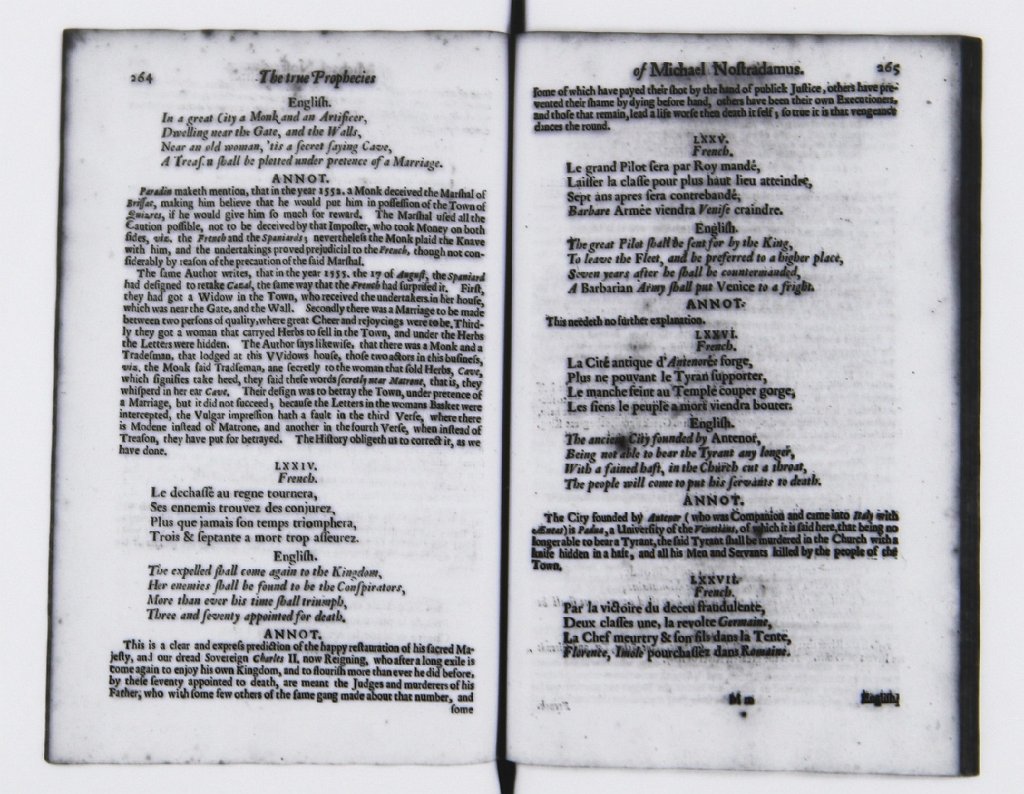 264 The true Prophecies
Engliſh.
In a great City a Monk and an Artificer,
Dwelling near the Gate, and the Walls,
Near an old woman, 'tis a ſecret ſaying Cave,
A Treaſon ſhall be plotted under pretence of a Marriage.
ANNOT.
Paradin maketh mention, that in the year 1552. a Monk deceived the Marſhal of
Briſſac, making him believe that he would put him in poſſeſſion of the Town of
if he would give him ſo much for reward. The Marſhal uſed all the
Caution poſſible, not to be deceived by that Impoſter, who took Money on both
ſides, viz. the French and the Spaniards; nevertheleſs the Monk plaid the Knave
with him, and the undertakings proved prejudicial to the French, though not con-
ſiderably by reaſon of the precaution of the ſaid Marſhal.
The ſame Author writes, that in the year 1555. the 17 of Auguſt, the Spaniard
had deſigned to retake Caſal, the ſame way that the French had ſurpriſed it. Firſt,
they had got a Widow in the Town, who received the undertakers in her houſe,
which was near the Gate, and the Wall. Secondly there was a Marriage to be made
between two perſons of quality, where great Cheer and rejoycings were to be, Third-
ly they got a woman that carryed Herbs to ſell in the Town, and under the Herbs
the Letters were hidden. The Author ſays likewiſe, that there was a Monk and a
Tradeſman, that lodged at this VVidows houſe, thoſe two actors in this buſineſs,
via. the Monk ſaid Tradſman, are ſecretly to the woman that ſold Herbs, Cave,
which ſignifies take heed, they ſaid theſe words ſecretly near Matrone, that is, they
whiſperd in her ear Cave. Their deſign was to betray the Town, under pretence of
a Marriage, but it did not ſucceed; becauſe the Letters in the womans Basket were
intercepted, the Vulgar impreſſion hath a fault in the third Verſe, where there
is Modene inſtead of Matrone, and another in the fourth Verſe, when inſtead of
Treaſon, they have put for betrayed. The Hiſtory obligeth us to correct it, as we
have done.
LXXIV.
French.
Le dechaſſé au regne tournera,
Ses ennemis trouvez des conjurez,
Plus que jamais ſon temps triomphera,
Trois & ſeptante a mort trop aſſeurez.
Engliſh.
The expelled ſhall come again to the Kingdom,
Her enemies ſhall be found to be the Conſpirators,
More than ever his time ſhall triumph,
Three and ſeventy appointed for death.
ANNOT.
This is a clear and expreſs prediction of the happy reſtauration of his ſacred Ma-
jeſty, and our dread Sovereign Charles II. now Reigning, who after a long exile is
come again to enjoy his own Kingdom, and to flouriſh more than ever he did before,
by theſe ſeventy appointed to death, are meant the Judges and murderers of his
Father, who with ſome few others of the ſame gang made about that number, and
ſome
of Michael Noſtradamus. 265
ſome of which have payed their ſhot by the hand of publick Juſtice, others have pre-
vented their ſhame by dying before hand, others have been their own Executioners,
and thoſe that remain, lead a life worſe then death it ſelf; ſo true it is that vengeance
dances the round.
LXXV.
French.
Le grand Pilot ſera par Roy mandé,
Laiſſer la claſſe pour plus haut lieu atteindre,
Sept ans apres ſera contrebandé,
Barbare Armée viendra Veniſe craindre.
Engliſh.
The great Pilot ſhall be ſent for by the King,
To leave the Fleet, and be preferred to a higher place,
Seven years after he ſhall be countermanded,
A Barbarian Army ſhall put Venice to a fright.
ANNOT.
This needeth no further explanation.
LXXVI.
French.
La Cité antique d'Antenorée forge,
Plus ne pouvant le Tyran ſupporter,
Le manche feint au Temple couper gorge,
Les ſiens le peuple a mort viendra bouter.
Engliſh.
The ancient City founded by Antenor,
Being not able to bear the Tyrant any longer,
With a fained haft, in the Church cut a throat,
The people will come to put his ſervants to death.
ANNOT.
The City founded by Antenor (who was Companion and came into Italy with
Æneas) is Padua, a Univerſity of the Venetians, of which it is ſaid here, that being no
longer able to bear a Tyrant, the ſaid Tyrant ſhall be murdered in the Church with a
knife hidden in a haft, and all his Men and Servants killed by the people of the
Town.
LXXVII.
French.
Par la victoire du deceu fraudulente,
Deux claſſes une, la revolte Germaine,
La Chef meurtry & ſon fils dans la Tente,
Florence, Imole pourchaſſez dans Romaine.
M m
Engliſh